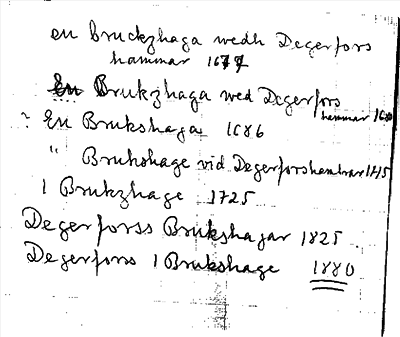 en bruckzhaga wedh Degerfors
hammar 1677
En Brukzhaga wed Degerfors
hammar
? En Brukshaga 1686
" Brukshage vid Degerforshamrar 1715
1 Brukzhage 1725
Degerforss Brukshagar 1825
Degerfors 1 Brukshage 1880